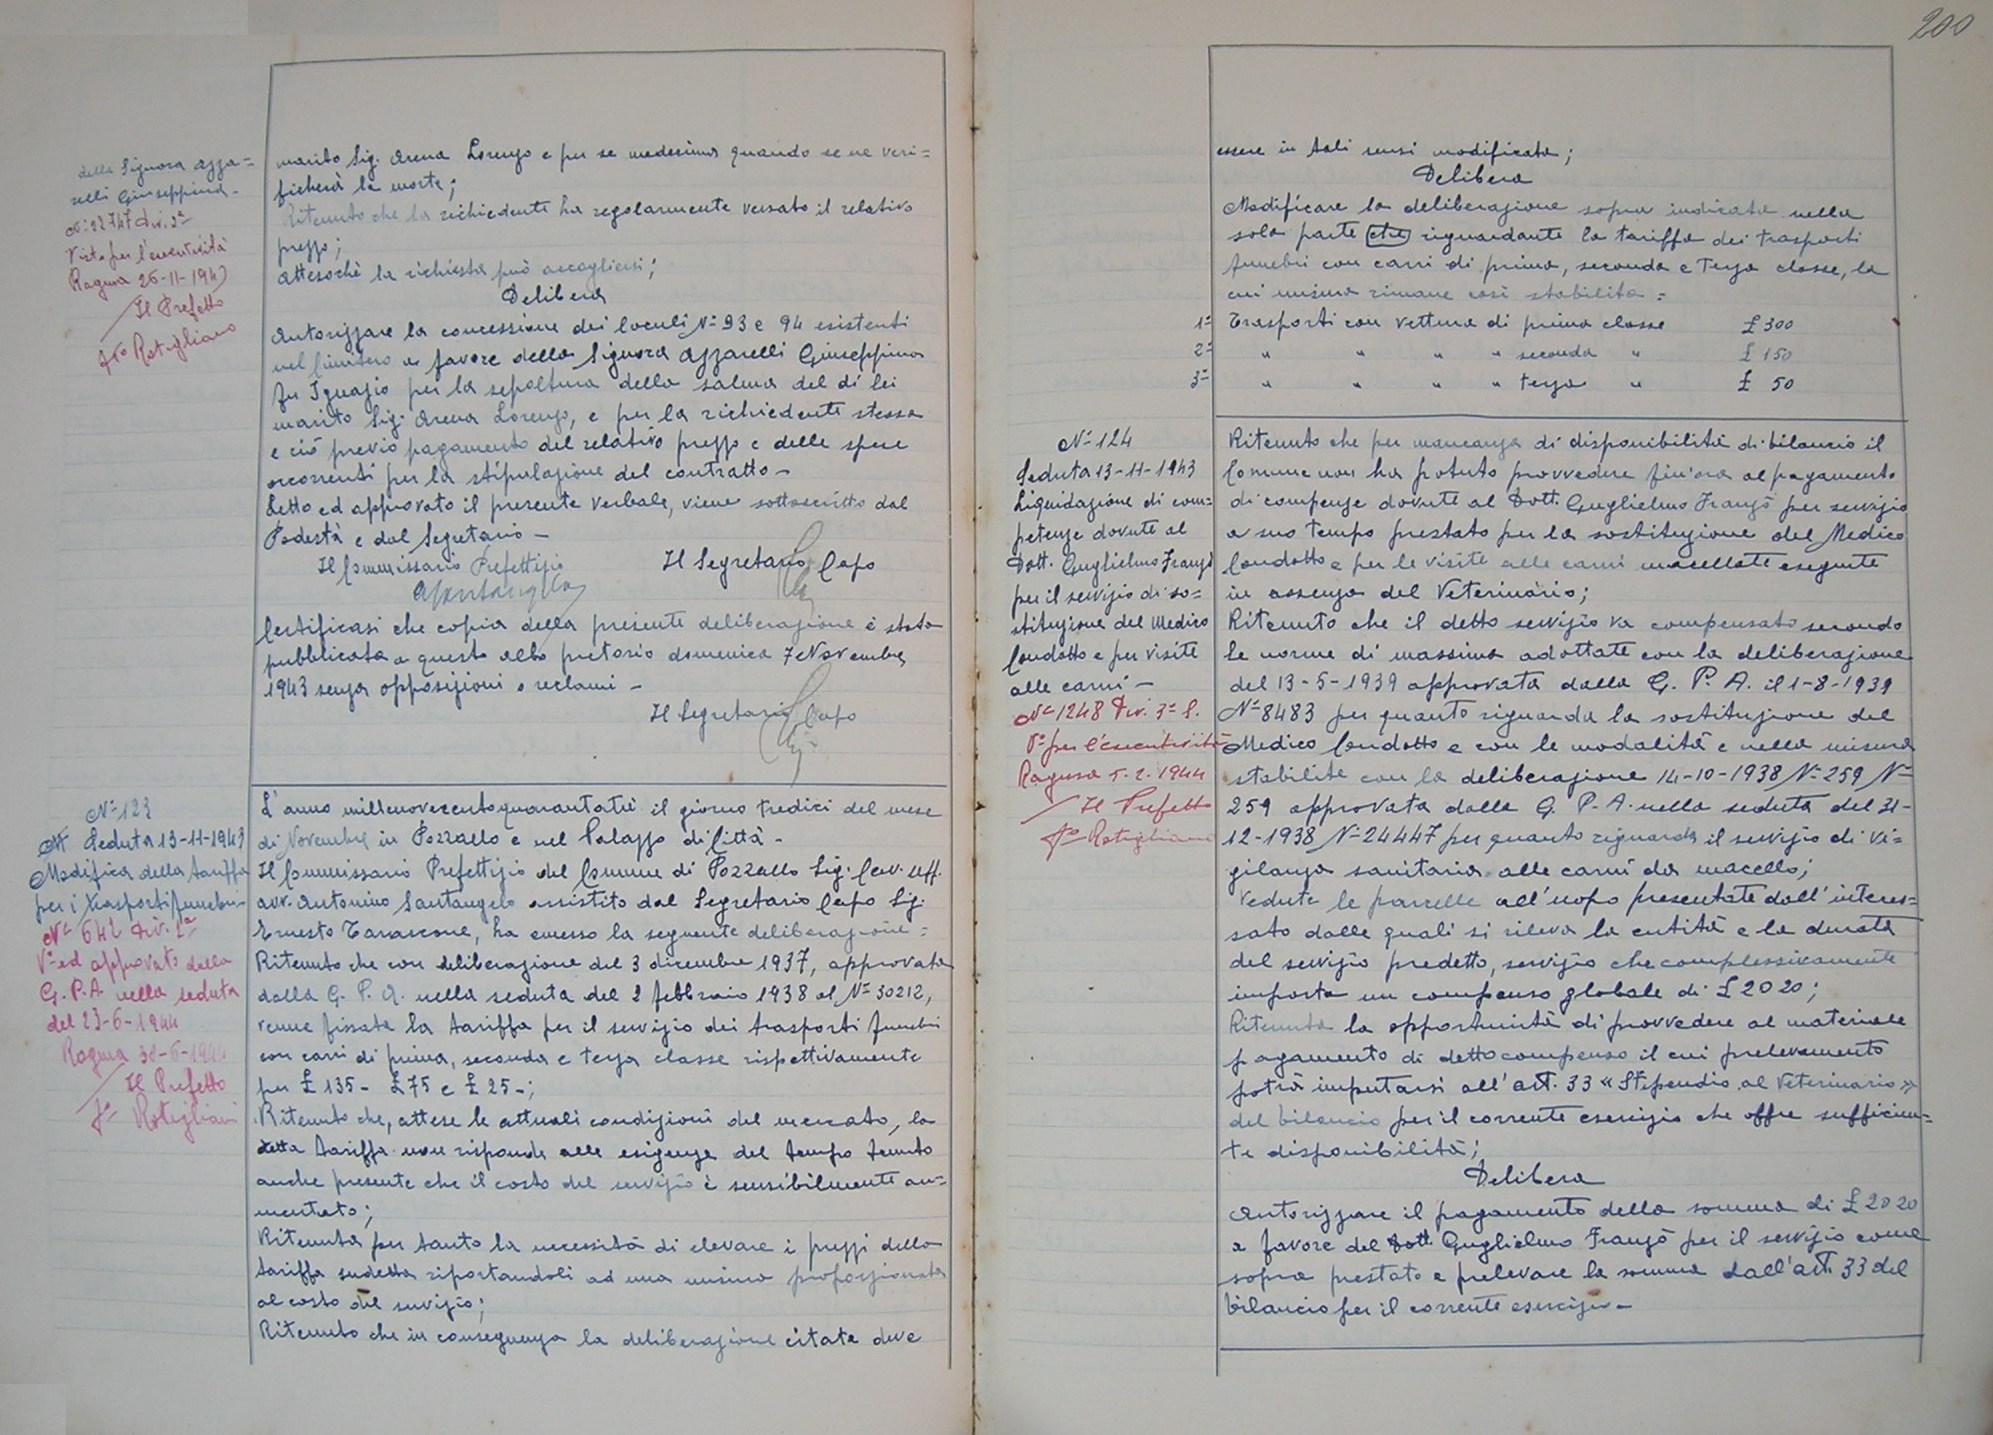 della Signora Azza=
relli Giuseppina -
N: 22747 Div. 2ª
Visto per l'esecutività
Ragusa 26-11-1943
Il Prefetto
fto Rotigliano
marito Sig. Arena Lorenzo e per se medesima quando se ne veri=
ficherà la morte;
Ritenuto che la richiedente ha regolarmente versato il relativo
prezzo;
Attesochè la richiesta può accogliersi;
Delibera
Autorizzare la concessione dei loculi N= 93 e 94 esistenti
nel Cimitero a favore della Signora Azzarelli Giuseppina
fu Ignazio per la sepoltura della salma del di lei
marito Sig. Arena Lorenzo, e per la richiedente stessa
e ciò previo pagamento del relativo prezzo e delle spese
occorrenti per la stipulazione del contratto -
Letto ed approvato il presente verbale, viene sottoscritto dal
Podestà e dal Segretario -
Il Commissario Prefettizio Il Segretario Capo
ASantangelo
Certificasi che copia della presente deliberazione è stata
pubblicata a questo albo pretorio domenica 7 Novembre
1943 senza opposizioni o reclami -
Il Segretario Capo
N= 123
Seduta 13-11-1943
Modifica della tariffa
per i trasporti funebri -
N= 642 Div. 2ª
V= ed approvato dalla
G. P. A. nella seduta
del 23-6-1944
Ragusa 30-6-1944
Il Prefetto
f= Rotigliani
L'anno millenovecentoquarantatrè il giorno tredici del mese
di Novembre in Pozzallo e nel Palazzo di Città -
Il Commissario Prefettizio del Comune di Pozzallo Sig. Cav. Uff.
avv. Antonino Santangelo assistito dal Segretario Capo Sig.
Ernesto Tarascone, ha emesso la seguente deliberazione =
Ritenuto che con deliberazione del 3 dicembre 1937, approvata
dalla G. P. A. nella seduta del 2 febbraio 1938 al N= 30212,
venne fissata la tariffa per il servizio dei trasporti funebri
con carri di prima, seconda e terza classe rispettivamente
per £ 135 - £ 75 e £ 25 -;
Ritenuto che, attese le attuali condizioni del mercato, la
detta tariffa non risponde alle esigenze del tempo tenuto
anche presente che il costo del servizio è sensibilmente au=
mentato;
Ritenuta per tanto la necessità di elevare i prezzi della
tariffa sudetta riportandoli ad una misura proporzionata
al costo del servizio;
Ritenuto che in conseguenza la deliberazione citata deve
200
essere in tali sensi modificata;
Delibera
Modificare la deliberazione sopra indicata nella
sola parte che riguardante la tariffa dei trasporti
funebri con carri di prima, seconda e terza classe, la
cui misura rimane così stabilita =
1= Trasporti con vettura di prima classe £ 300
2= " " " " seconda " £ 150
3= " " " " terza " £ 50
N= 124
Seduta 13-11-1943
Liquidazione di com=
petenze dovute al
Dott. Guglielmo Franzò
per il servizio di so=
stituzione del Medico
Condotto e per visite
alle carni -
N= 1248 Div. 3= S.
V= per l'esecutività
Ragusa 5-2-1944
Il Prefetto
f= Rotigliani
Ritenuto che per mancanza di disponibilità di bilancio il
Comune non ha potuto provvedere fin'ora al pagamento
di compenze dovute al Dott. Guglielmo Franzò per servizio
a suo tempo prestato per la sostituzione del Medico
Condotto e per le visite alle carni macellate eseguite
in assenza del Veterinario;
Ritenuto che il detto servizio va compensato secondo
le norme di massima adottate con la deliberazione
del 13-5-1939 approvata dalla G. P. A. il 1-8-1939
N= 8483 per quanto riguarda la sostituzione del
Medico Condotto e con le modalità e nella misura
stabilite con la deliberazione 14-10-1938 N= 259 N=
259 approvata dalla G. P. A. nella seduta del 31-
12-1938 N= 24447 per quanto riguarda il servizio di vi=
gilanza sanitaria alle carni da macello;
Vedute le parcelle all'uopo presentate dall'interes=
sato dalle quali si rileva la entità e la durata
del servizio predetto, servizio che complessivamente
importa un compenso globale di £ 2020;
Ritenuta la opportunità di provvedere al materiale
pagamento di detto compenso il cui prelevamento
potrà imputarsi all'art. 33 « Stipendio al Veterinario »
del bilancio per il corrente esercizio che offre sufficien=
te disponibilità;
Delibera
Autorizzare il pagamento della somma di £ 2020
a favore del Dott. Guglielmo Franzò per il servizio come
sopra prestato e prelevare la somma dall'art. 33 del
bilancio per il corrente esercizio -